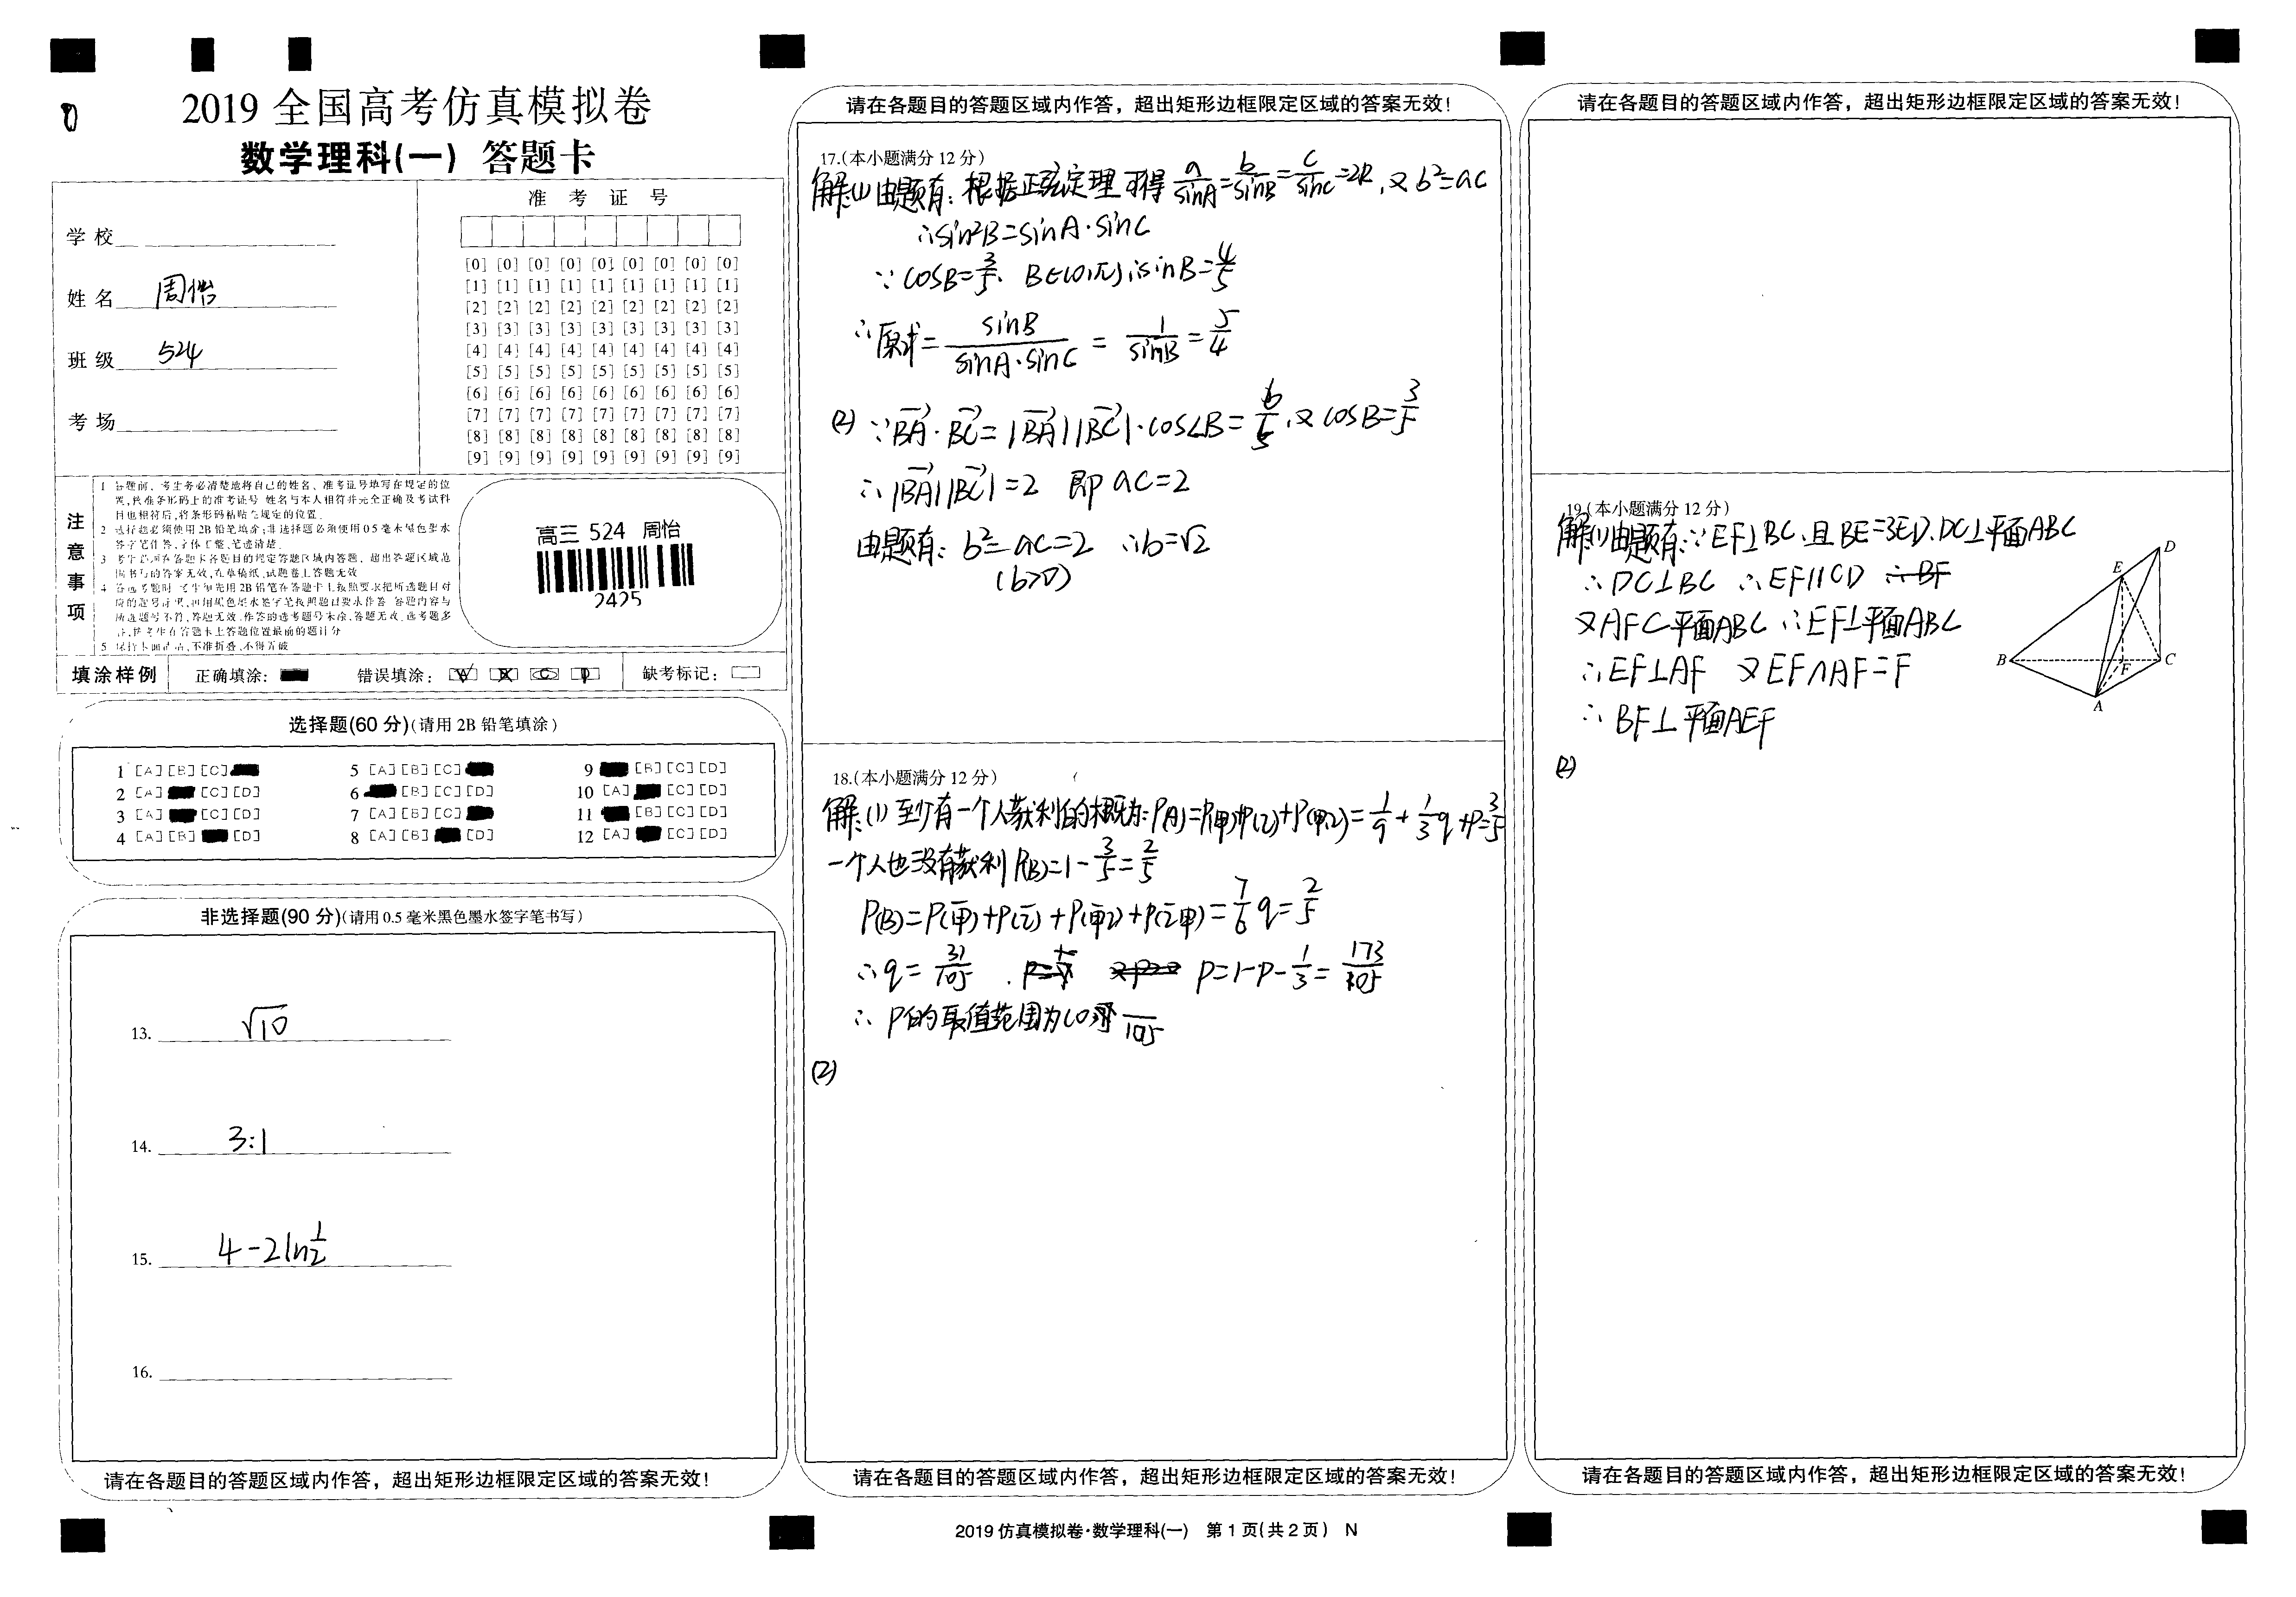 2019 全国高考仿真模拟卷
数学理科(一) 答题卡
学校
姓名 周怡
班级 524
考场
准 考 证 号
[0] [0] [0] [0] [0] [0] [0] [0] [0]
[1] [1] [1] [1] [1] [1] [1] [1] [1]
[2] [2] [2] [2] [2] [2] [2] [2] [2]
[3] [3] [3] [3] [3] [3] [3] [3] [3]
[4] [4] [4] [4] [4] [4] [4] [4] [4]
[5] [5] [5] [5] [5] [5] [5] [5] [5]
[6] [6] [6] [6] [6] [6] [6] [6] [6]
[7] [7] [7] [7] [7] [7] [7] [7] [7]
[8] [8] [8] [8] [8] [8] [8] [8] [8]
[9] [9] [9] [9] [9] [9] [9] [9] [9]
注意事项
1 答题前，考生务必清楚地将自己的姓名、准考证号填写在规定的位
置，核准条形码上的准考证号 姓名与本人相符并完全正确及考试科
目也相符后，将条形码粘贴在规定的位置
2 选择题必须使用2B铅笔填涂；非选择题必须使用0.5毫米黑色墨水
签字笔作答，字体工整、笔迹清楚
3 考生必须在答题卡各题目的规定答题区域内答题，超出答题区域范
围书写的答案无效，在草稿纸、试题卷上答题无效
5 保持卡面清洁，不准折叠、不得弄破
高三 524 周怡
2425
填涂样例 正确填涂： 错误填涂： 缺考标记：
选择题(60 分)(请用 2B 铅笔填涂)
1 [A] [B] [C] 5 [A] [B] [C] 9 [B] [C] [D]
2 [A] [C] [D] 6 [B] [C] [D] 10 [A] [C] [D]
3 [A] [C] [D] 7 [A] [B] [C] 11 [B] [C] [D]
4 [A] [B] [D] 8 [A] [B] [D] 12 [A] [C] [D]
非选择题(90 分)(请用 0.5 毫米黑色墨水签字笔书写)
13. √10
14. 3:1
15. 4-2ln1/2
16.
请在各题目的答题区域内作答，超出矩形边框限定区域的答案无效！
请在各题目的答题区域内作答，超出矩形边框限定区域的答案无效！
17.(本小题满分 12 分)
解:(1)由题有：根据正弦定理可得 a/sinA=b/sinB=c/sinC=2R，又b²=ac
∴sin²B=sinA·sinC
∵cosB=3/5、B∈(0,π)∴sinB=4/5
∴原式=sinB/(sinA·sinC)=1/sinB=5/4
(2) ∵BA·BC=|BA||BC|·cos∠B=6/5，又cosB=3/5
∴|BA||BC|=2 即ac=2
由题有：b²=ac=2 ∴b=√2
(b>0)
18.(本小题满分 12 分)
解:(1)至少有一个人获利的概率为:P(A)=P(甲)P(乙)+P(甲乙)=1/9+1/3q+P=3/5
一个人也没有获利P(B)=1-3/5=2/5
P(B)=P(甲)+P(乙)+P(甲乙)+P(乙甲)=7/6q=2/5
∴q=31/105 P=1-P-1/3=173/105
∴P的取值范围为(0 105
(2)
请在各题目的答题区域内作答，超出矩形边框限定区域的答案无效！
2019 仿真模拟卷·数学理科(一) 第 1 页(共 2 页) N
请在各题目的答题区域内作答，超出矩形边框限定区域的答案无效！
19.(本小题满分 12 分)
解(1)由题有:∵EF⊥BC、且BE=3ED、DC⊥平面ABC
∴DC⊥BC ∴EF∥CD ∴BF
又AF⊂平面ABC ∴EF⊥平面ABC
∴EF⊥AF 又EF∩AF=F
∴BF⊥平面AEF
(2)
D
E
B
F
C
A
请在各题目的答题区域内作答，超出矩形边框限定区域的答案无效！